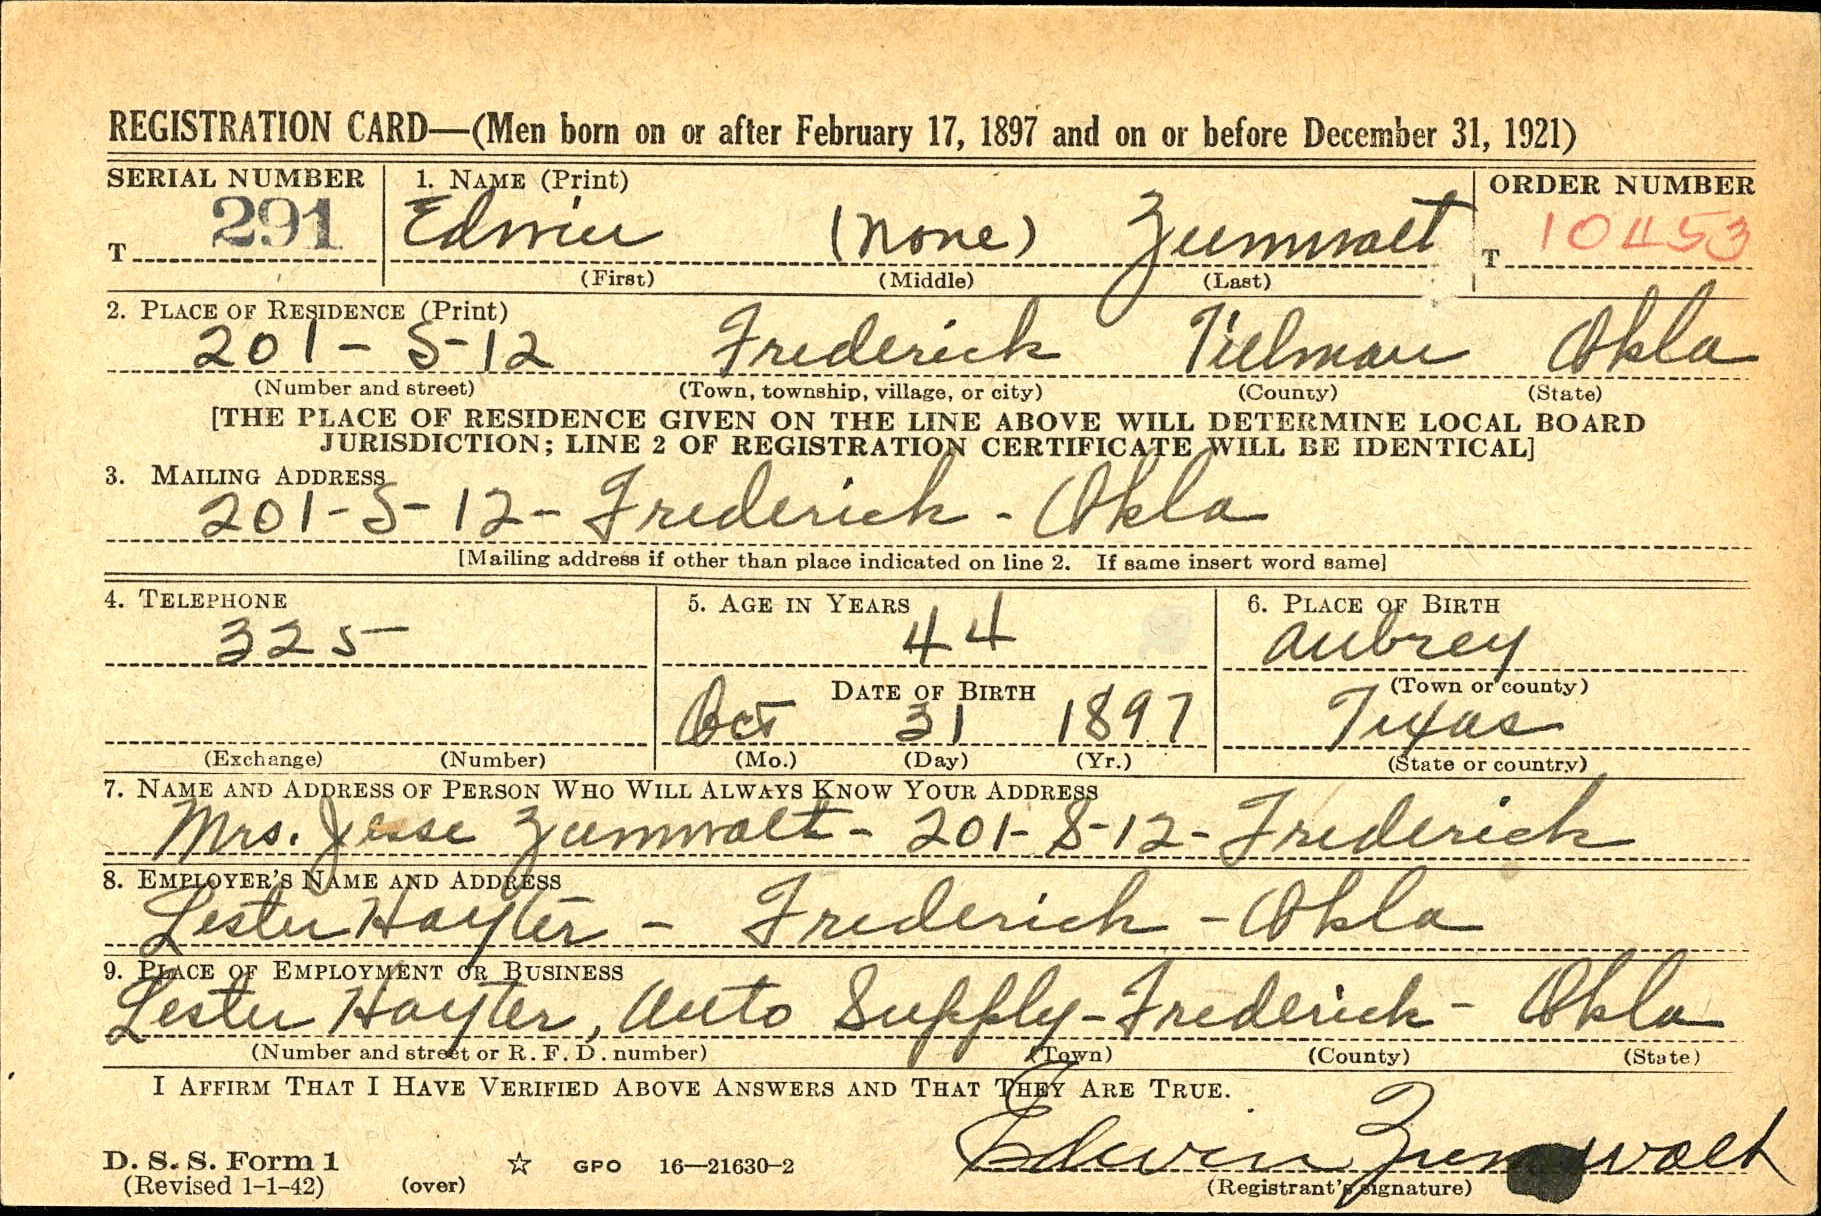 REGISTRATION CARD—(Men born on or after February 17, 1897 and on or before December 31, 1921)
SERIAL NUMBER 1. NAME (Print) ORDER NUMBER
T 291 Edwin (None) Zumwalt T 10453
(First) (Middle) (Last)
2. PLACE OF RESIDENCE (Print)
201-S-12 Frederick Tillman Okla
(Number and street) (Town, township, village, or city) (County) (State)
[THE PLACE OF RESIDENCE GIVEN ON THE LINE ABOVE WILL DETERMINE LOCAL BOARD
JURISDICTION; LINE 2 OF REGISTRATION CERTIFICATE WILL BE IDENTICAL]
3. MAILING ADDRESS
201-S-12-Frederick-Okla
[Mailing address if other than place indicated on line 2. If same insert word same]
4. TELEPHONE 5. AGE IN YEARS 6. PLACE OF BIRTH
325 44 Aubrey
DATE OF BIRTH (Town or county)
Oct 31 1897 Texas
(Exchange) (Number) (Mo.) (Day) (Yr.) (State or country)
7. NAME AND ADDRESS OF PERSON WHO WILL ALWAYS KNOW YOUR ADDRESS
Mrs. Jesse Zumwalt-201-S-12-Frederick
8. EMPLOYER'S NAME AND ADDRESS
Lester Hayter - Frederick - Okla
9. PLACE OF EMPLOYMENT OR BUSINESS
Lester Hayter, Auto Supply-Frederick-Okla
(Number and street or R. F. D. number) (Town) (County) (State)
I AFFIRM THAT I HAVE VERIFIED ABOVE ANSWERS AND THAT THEY ARE TRUE.
Edwin Zumwalt
D. S. S. Form 1
(Revised 1-1-42) (over) ☆ GPO 16—21630-2 (Registrant's signature)